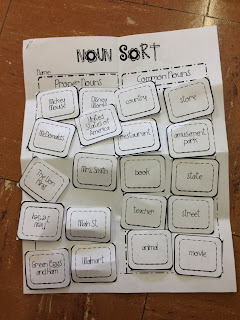 NOUN SORT
Name:
Proper Nouns
Common Nouns
Mickey
Mouse
Disney
World
country
store
McDonalds
United
States of
America
restaurant
amusement
park
The Lion
King
Mrs. Smith
book
state
Main St.
teacher
street
Green Eggs
and Ham
Walmart
animal
movie